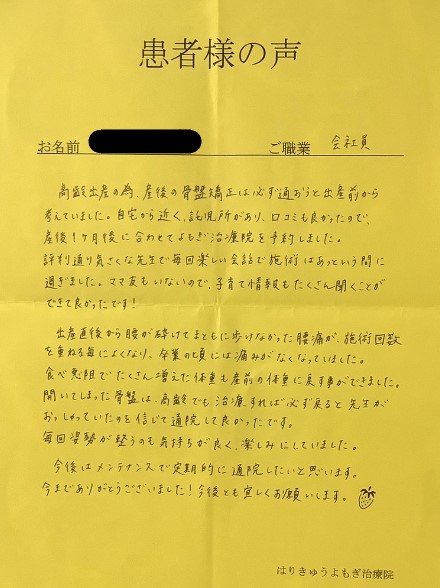 患者様の声
お名前
ご職業 会社員
高齢出産の為、産後の骨盤矯正は必ず通おうと出産前から
考えていました。自宅から近く、託児所があり、口コミも良かったので、
産後1ヶ月後に合わせてよもぎ治療院を予約しました。
評判通り気さくな先生で毎回楽しい会話で施術はあっという間に
過ぎました。ママ友もいないので、子育て情報もたくさん聞くことが
できて良かったです!
出産直後から腰が砕けてまともに歩けなかった腰痛が、施術回数
を重ねる毎によくなり、卒業の頃には痛みがなくなっていました。
食べ悪阻でたくさん増えた体重も産前の体重に戻す事ができました。
開いてしまった骨盤は、高齢でも治療すれば必ず戻ると先生が
おっしゃっていたのを信じて通院して良かったです。
毎回姿勢が整うのも気持ちが良く、楽しみにしていました。
今後はメンテナンスで定期的に通院したいと思います。
今までありがとうございました!今後とも宜しくお願いします。
はりきゅうよもぎ治療院